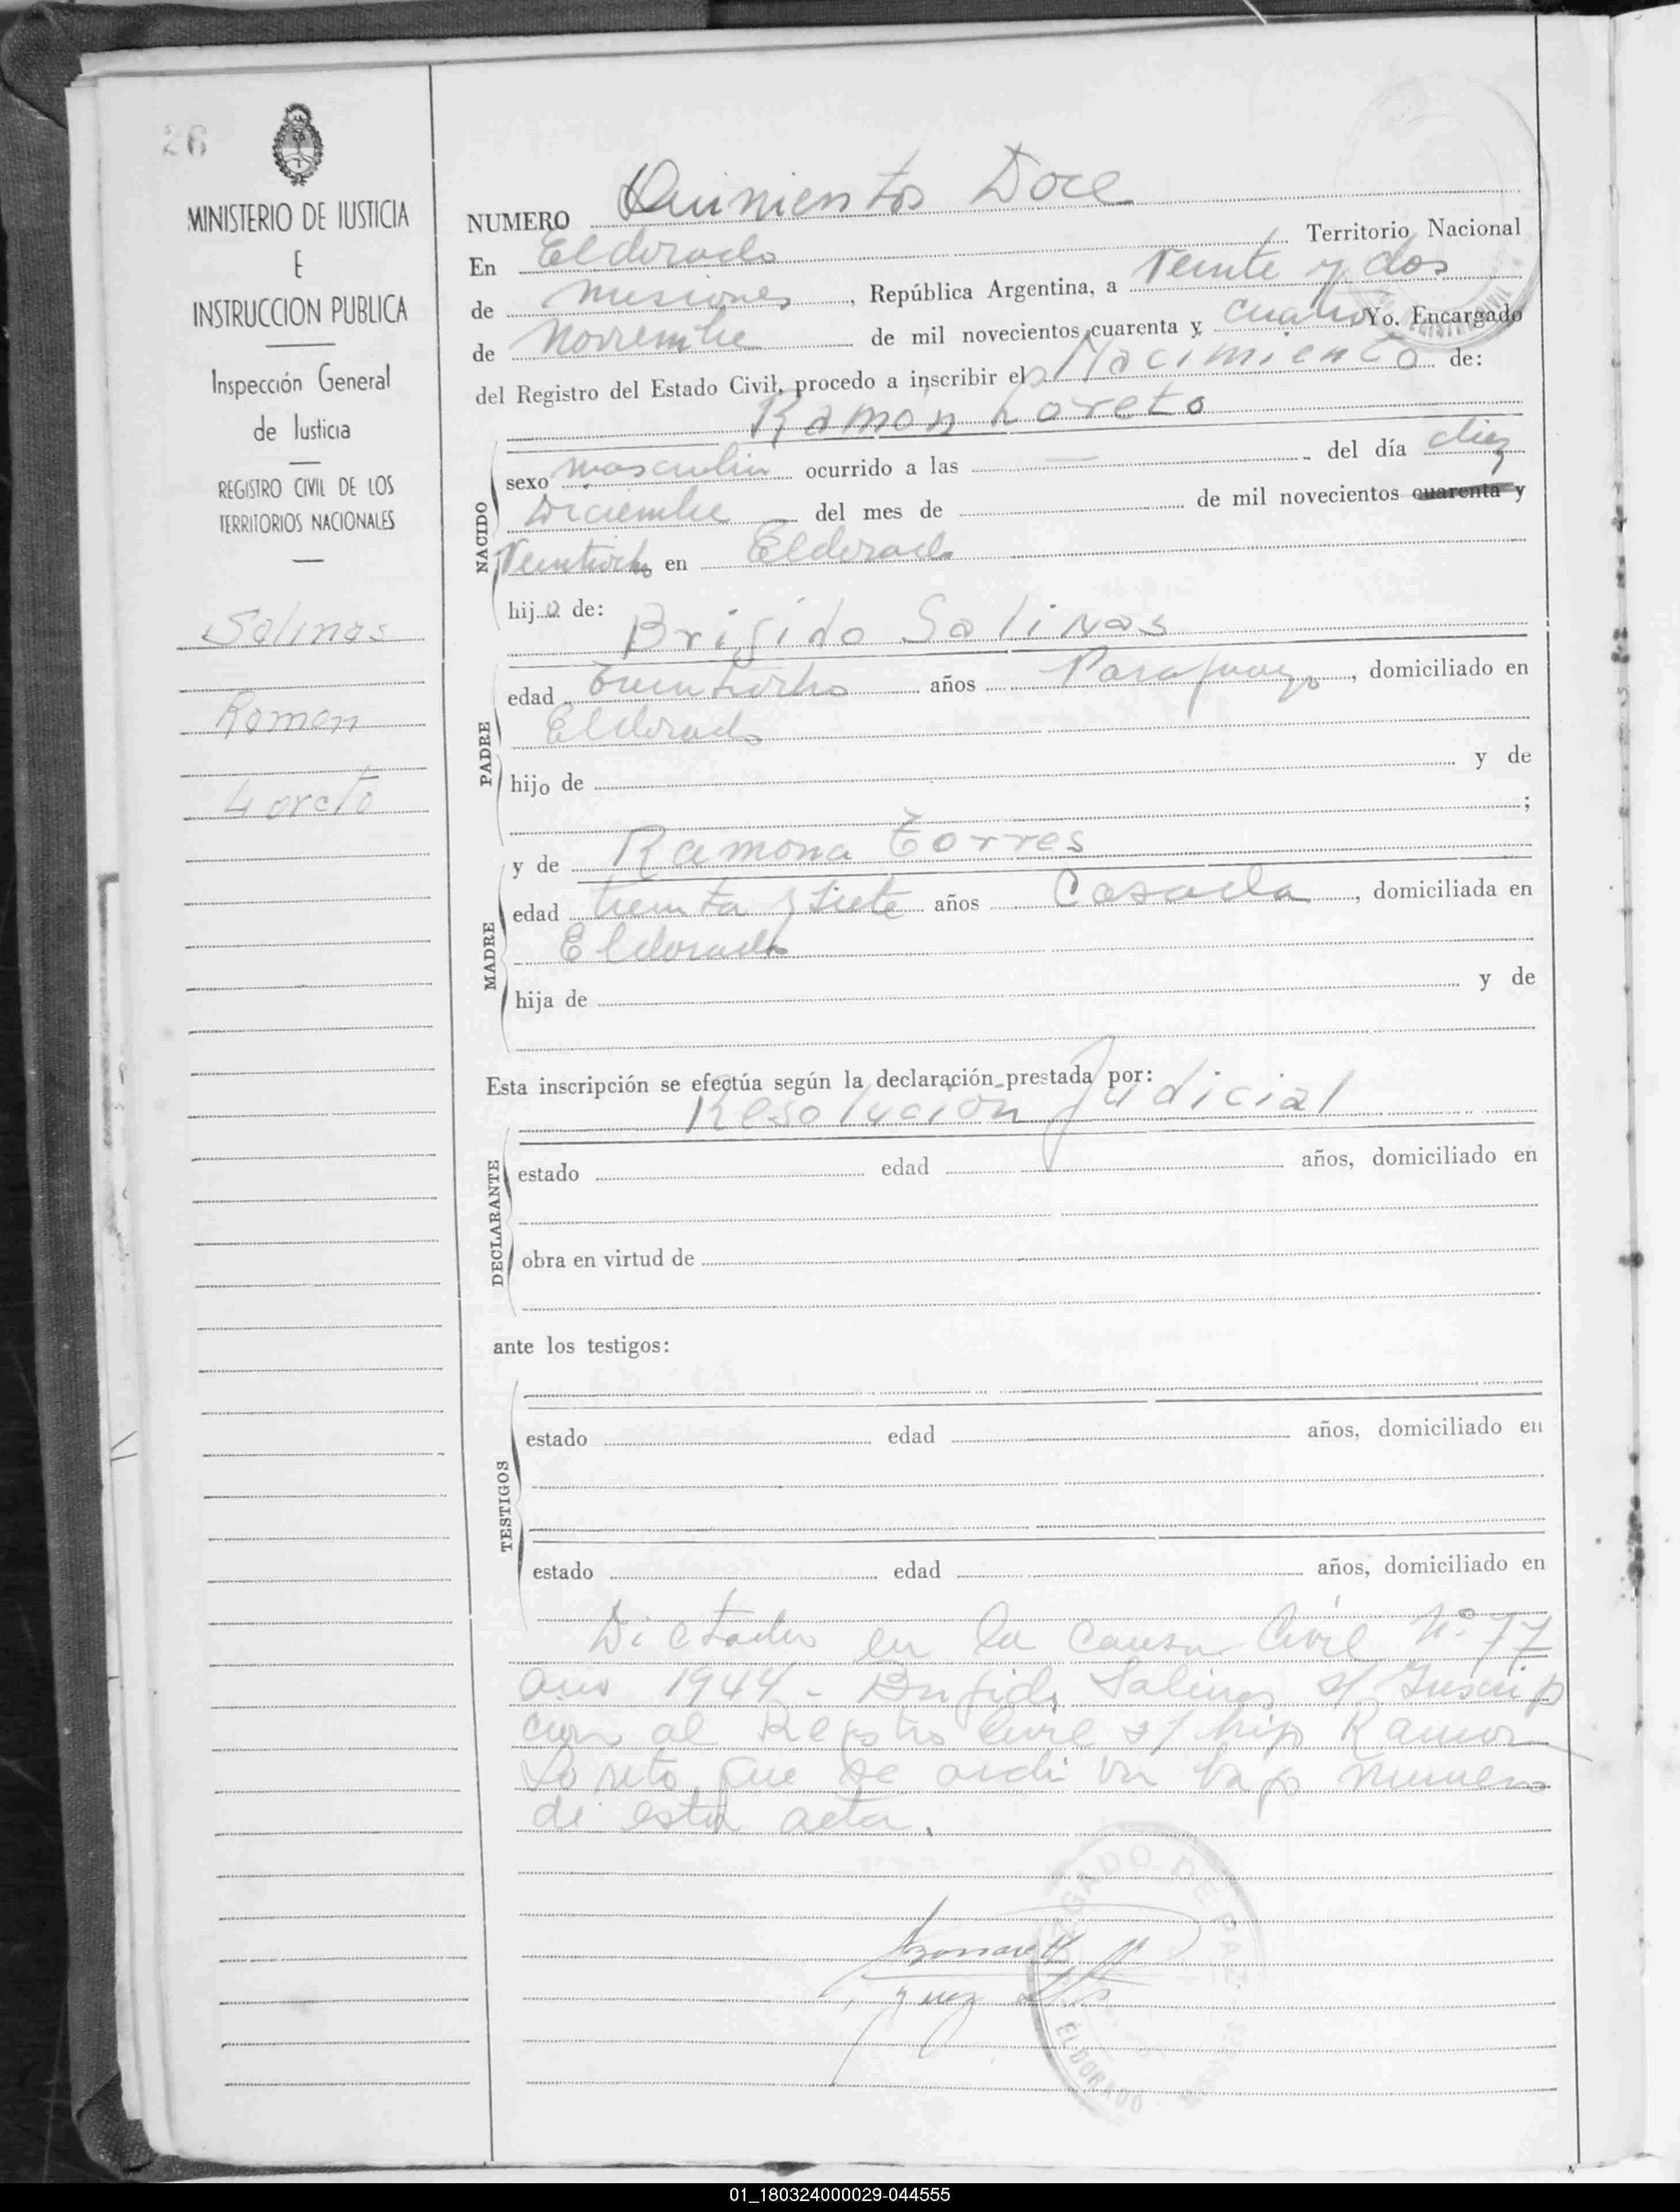 26
MINISTERIO DE JUSTICIA
E
INSTRUCCION PUBLICA
Inspección General
de Justicia
REGISTRO CIVIL DE LOS
TERRITORIOS NACIONALES
Salinas
Ramon
Loreto
NUMERO Quinientos Doce
En Eldorado Territorio Nacional
de Misiones, República Argentina, a Veinte y dos
de Noviembre de mil novecientos cuarenta y cuatro Yo, Encargado
del Registro del Estado Civil, procedo a inscribir el Nacimiento de:
Ramón Loreto
NACIDO
sexo masculin ocurrido a las — del día diez
Diciembre del mes de de mil novecientos cuarenta y
Veintiocho en Eldorado
hijo de:
Brigido Salinas
PADRE
edad años Paraguayo, domiciliado en
Eldorado
hijo de y de
;
y de Ramona Torres
MADRE
edad treinta y siete años Casada, domiciliada en
Eldorado
hija de y de
Esta inscripción se efectúa según la declaración prestada por:
Resolución Judicial
DECLARANTE
estado edad años, domiciliado en
obra en virtud de
ante los testigos:
TESTIGOS
estado edad años, domiciliado en
estado edad años, domiciliado en
Dictada en la causa Civil Nº 77
año 1944 - Brigido Salinas s/ Inscrip
cion al Registro Civil s/ hijo Ramon
Loreto, que se archiva bajo numero
de esta acta.
JUZGADO DE PAZ
ELDORADO
01_180324000029-044555